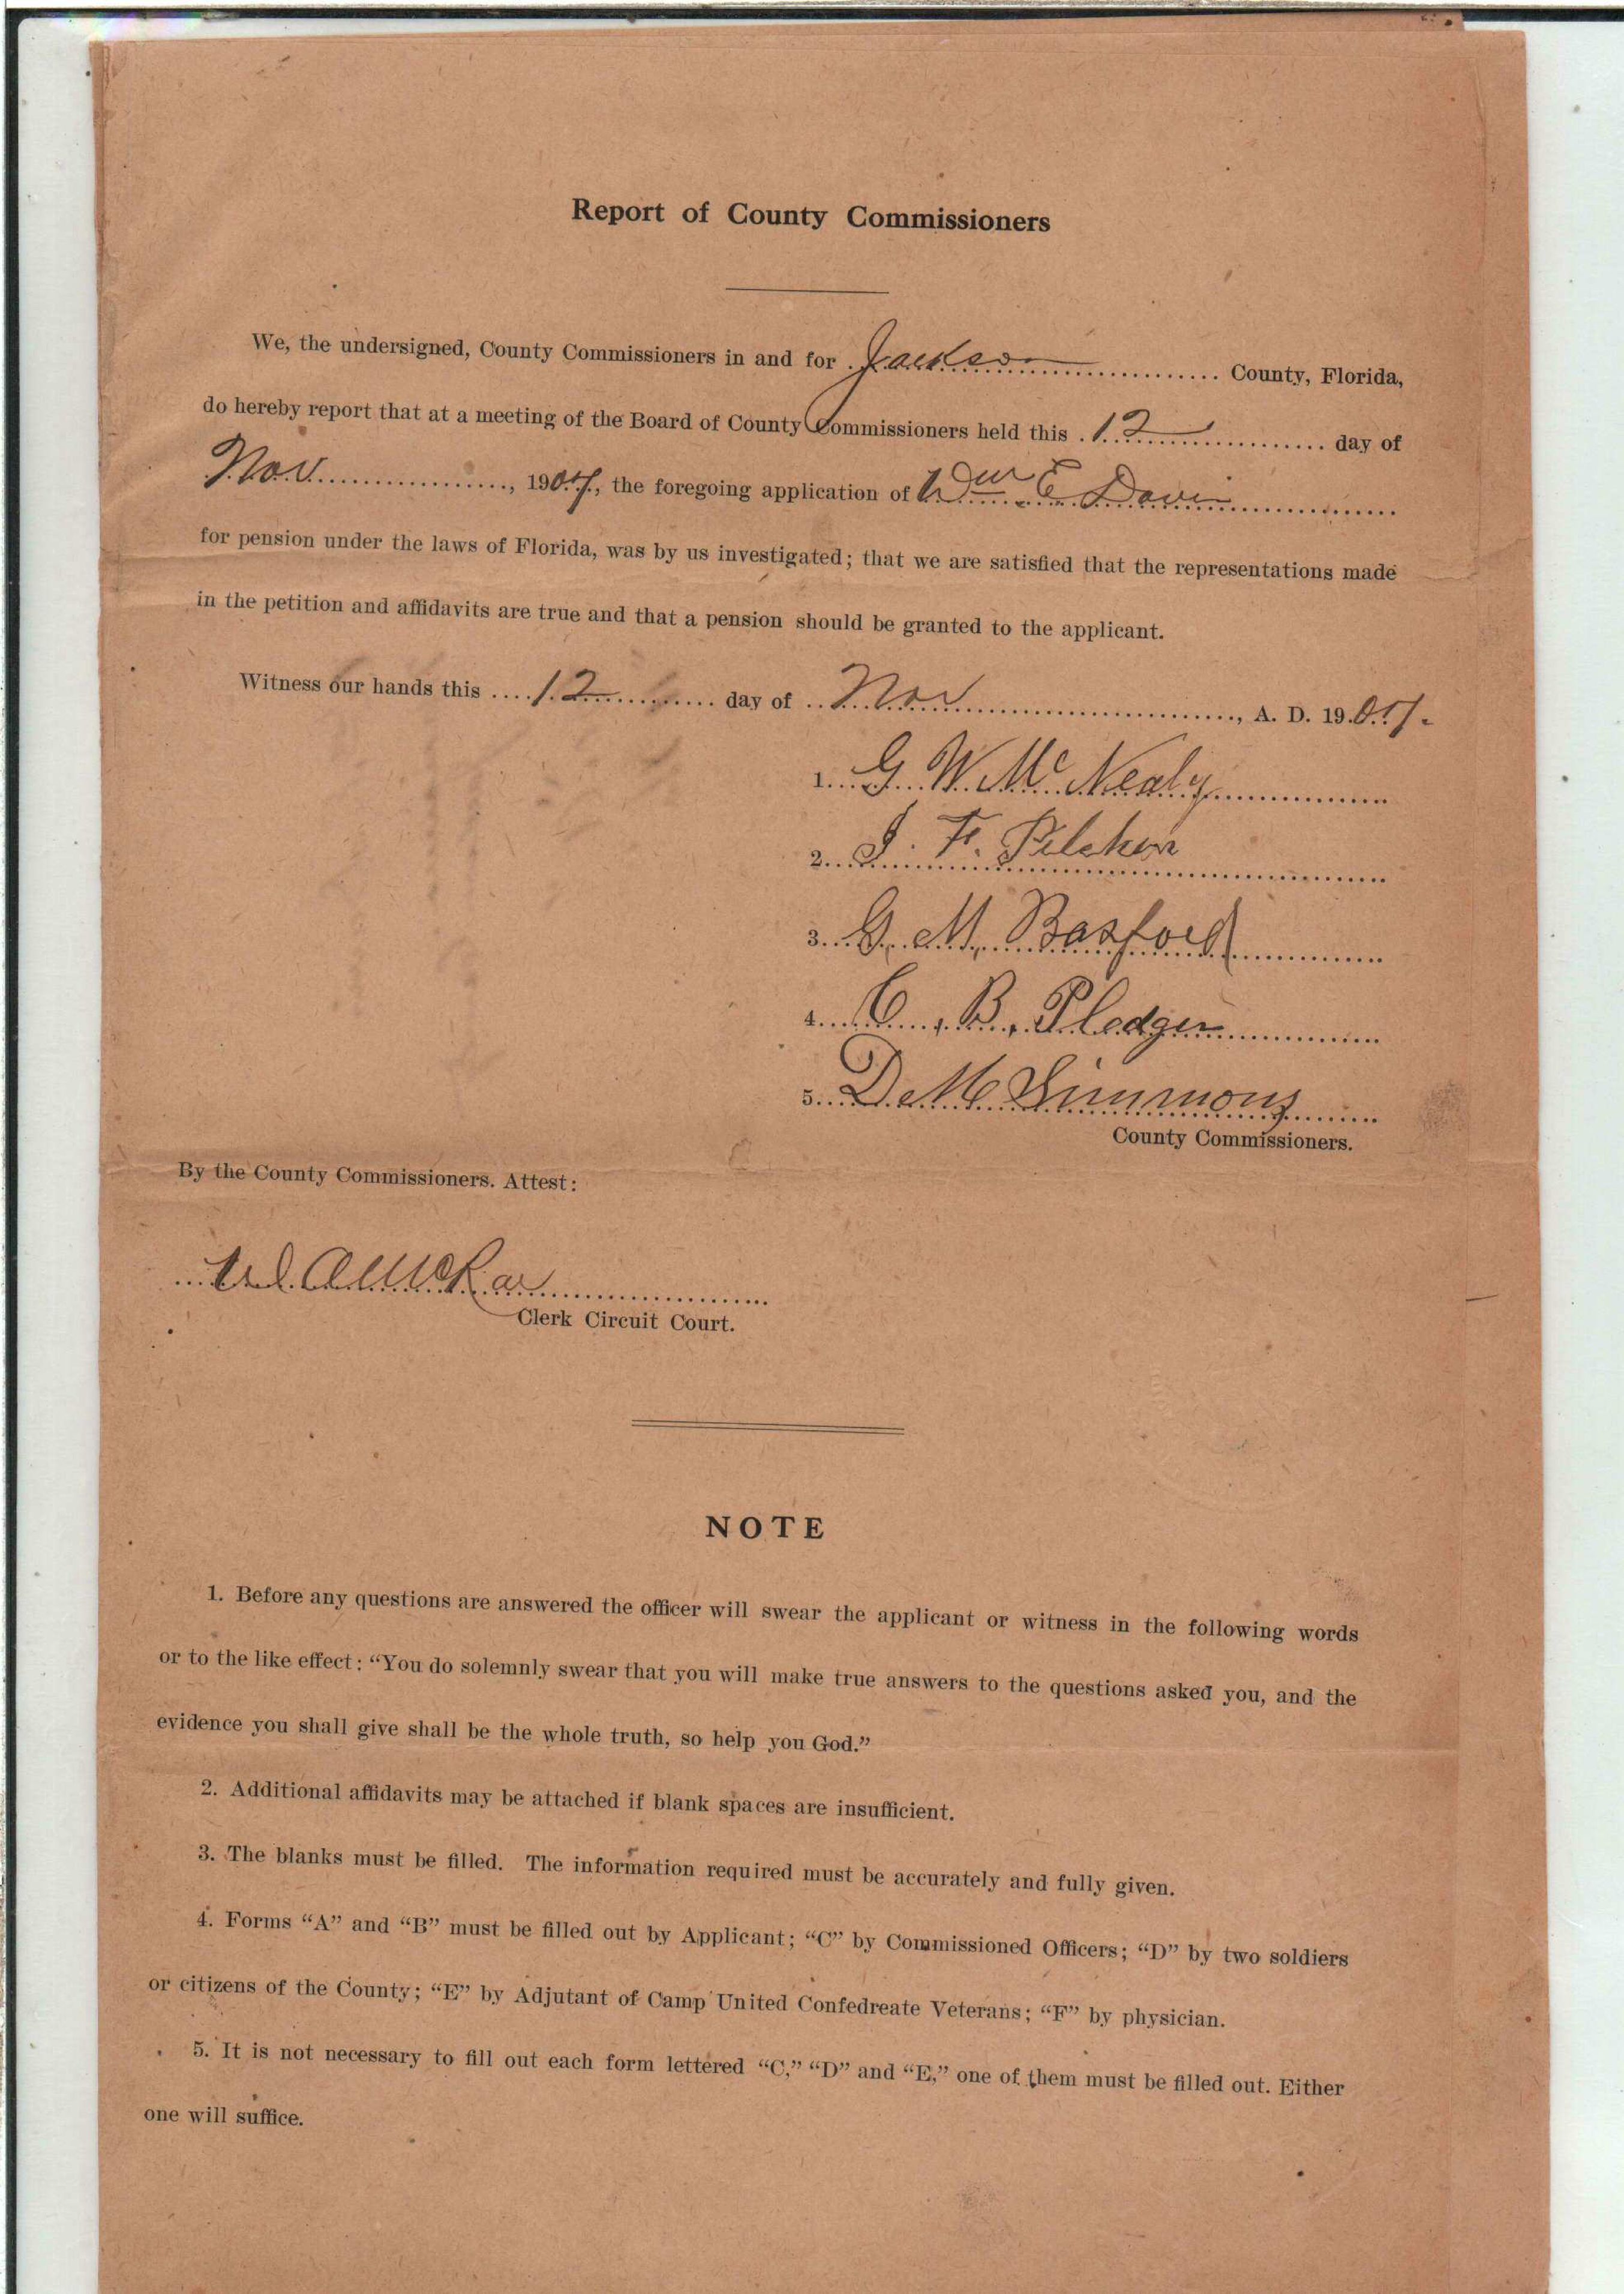 Report of County Commissioners
We, the undersigned, County Commissioners in and for Jackson County, Florida,
do hereby report that at a meeting of the Board of County Commissioners held this 12 day of
Nov, 1907, the foregoing application of Wm E Davis
for pension under the laws of Florida, was by us investigated; that we are satisfied that the representations made
in the petition and affidavits are true and that a pension should be granted to the applicant.
Witness our hands this 12 day of Nov, A. D. 1907.
1. G. W. McNealy
2. J. F. Pilcher
3. G. M. Basford
4. C. B. Pledger
5. D M Simmons
County Commissioners.
By the County Commissioners. Attest:
Clerk Circuit Court.
NOTE
1. Before any questions are answered the officer will swear the applicant or witness in the following words
or to the like effect: “You do solemnly swear that you will make true answers to the questions asked you, and the
evidence you shall give shall be the whole truth, so help you God.”
2. Additional affidavits may be attached if blank spaces are insufficient.
3. The blanks must be filled. The information required must be accurately and fully given.
4. Forms “A” and “B” must be filled out by Applicant; “C” by Commissioned Officers; “D” by two soldiers
or citizens of the County; “E” by Adjutant of Camp United Confedreate Veterans; “F” by physician.
5. It is not necessary to fill out each form lettered “C,” “D” and “E,” one of them must be filled out. Either
one will suffice.